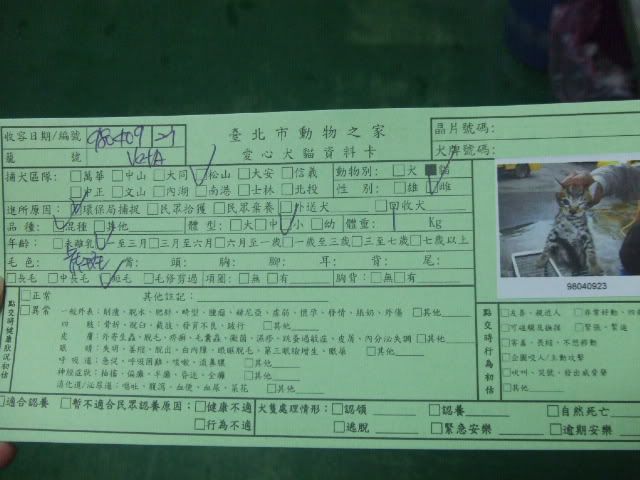 臺北市動物之家
愛心犬貓資料卡
收容日期/編號 980409 -23
籠 號
晶片號碼:
犬牌號碼:
捕犬區隊: □萬華 □中山 □大同 □松山 □大安 □信義
□中正 □文山 □內湖 □南港 □士林 □北投
動物別: □犬 ■貓
性 別: □雄 □雌
進所原因: □環保局捕捉 □民眾拾獲 □民眾棄養 □外送犬 □回收犬
品種: □混種 □其他 體型: □大 □中 □小 □幼 體重: 1 Kg
年齡: □未離乳 □一至三月 □三月至六月 □六月至一歲 □一歲至三歲 □三至七歲 □七歲以上
毛色: 背: 頭: 胸: 腳: 耳: 背: 尾:
□長毛 □中長毛 □短毛 □毛修剪過 項圈: □無 □有 胸背: □無 □有
98040923
點交時健康狀況初估
□正常 其他註記:
□異常 一般外表:
四 肢: 骨折、脫臼、截肢、發育不良、跛行 □其他
皮 膚: 外寄生蟲、脫毛、疥癬、毛囊蟲、黴菌、濕疹、跳蚤過敏症、皮屑、內分泌失調 □其他
眼 睛: 失明、萎縮、脫出、白內障、眼瞼脫毛、第三眼瞼增生、眼屎 □其他
呼吸道: 急促、呼吸困難、咳嗽、流鼻膿 □其他
神經症狀: 抽搐、偏癱、不癱、昏迷、全癱 □其他
消化道/泌尿道: 嘔吐、腹瀉、血便、血尿、菜花 □其他
點交時行為初估
□友善、親近人 □非常好動、四
□可連觸及撫摸 □緊張、緊迫
□害羞、畏縮、不想移動
□企圖咬人/主動攻擊
□吹叫、哭號、發出威脅聲
□其他
□適合認養 □暫不適合民眾認養原因: □健康不適
□行為不適
犬隻處理情形: □認領 □認養 □自然死亡
□逃脫 □緊急安樂 □逾期安樂